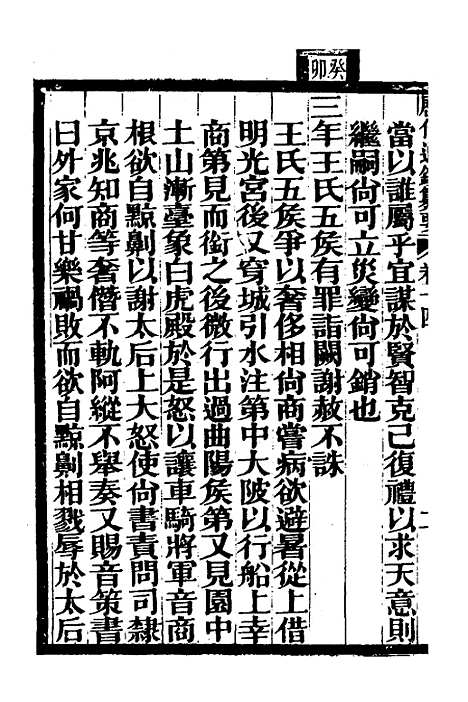 癸卯
當以誰屬乎宜謀於賢智克己復禮以求天意則
繼嗣尙可立災變尙可銷也
三年王氏五侯有罪詣闕謝赦不誅
王氏五侯爭以奢侈相尙商嘗病欲避暑從上借
明光宮後又穿城引水注第中大陂以行船上幸
商第見而銜之後微行出過曲陽侯第又見園中
土山漸臺象白虎殿於是怒以讓車騎將軍音商
根欲自黥劓以謝太后上大怒使尙書責問司隸
京兆知商等奢僭不軌阿縱不舉奏又賜音策書
曰外家何甘樂禍敗而欲自黥劓相戮辱於太后